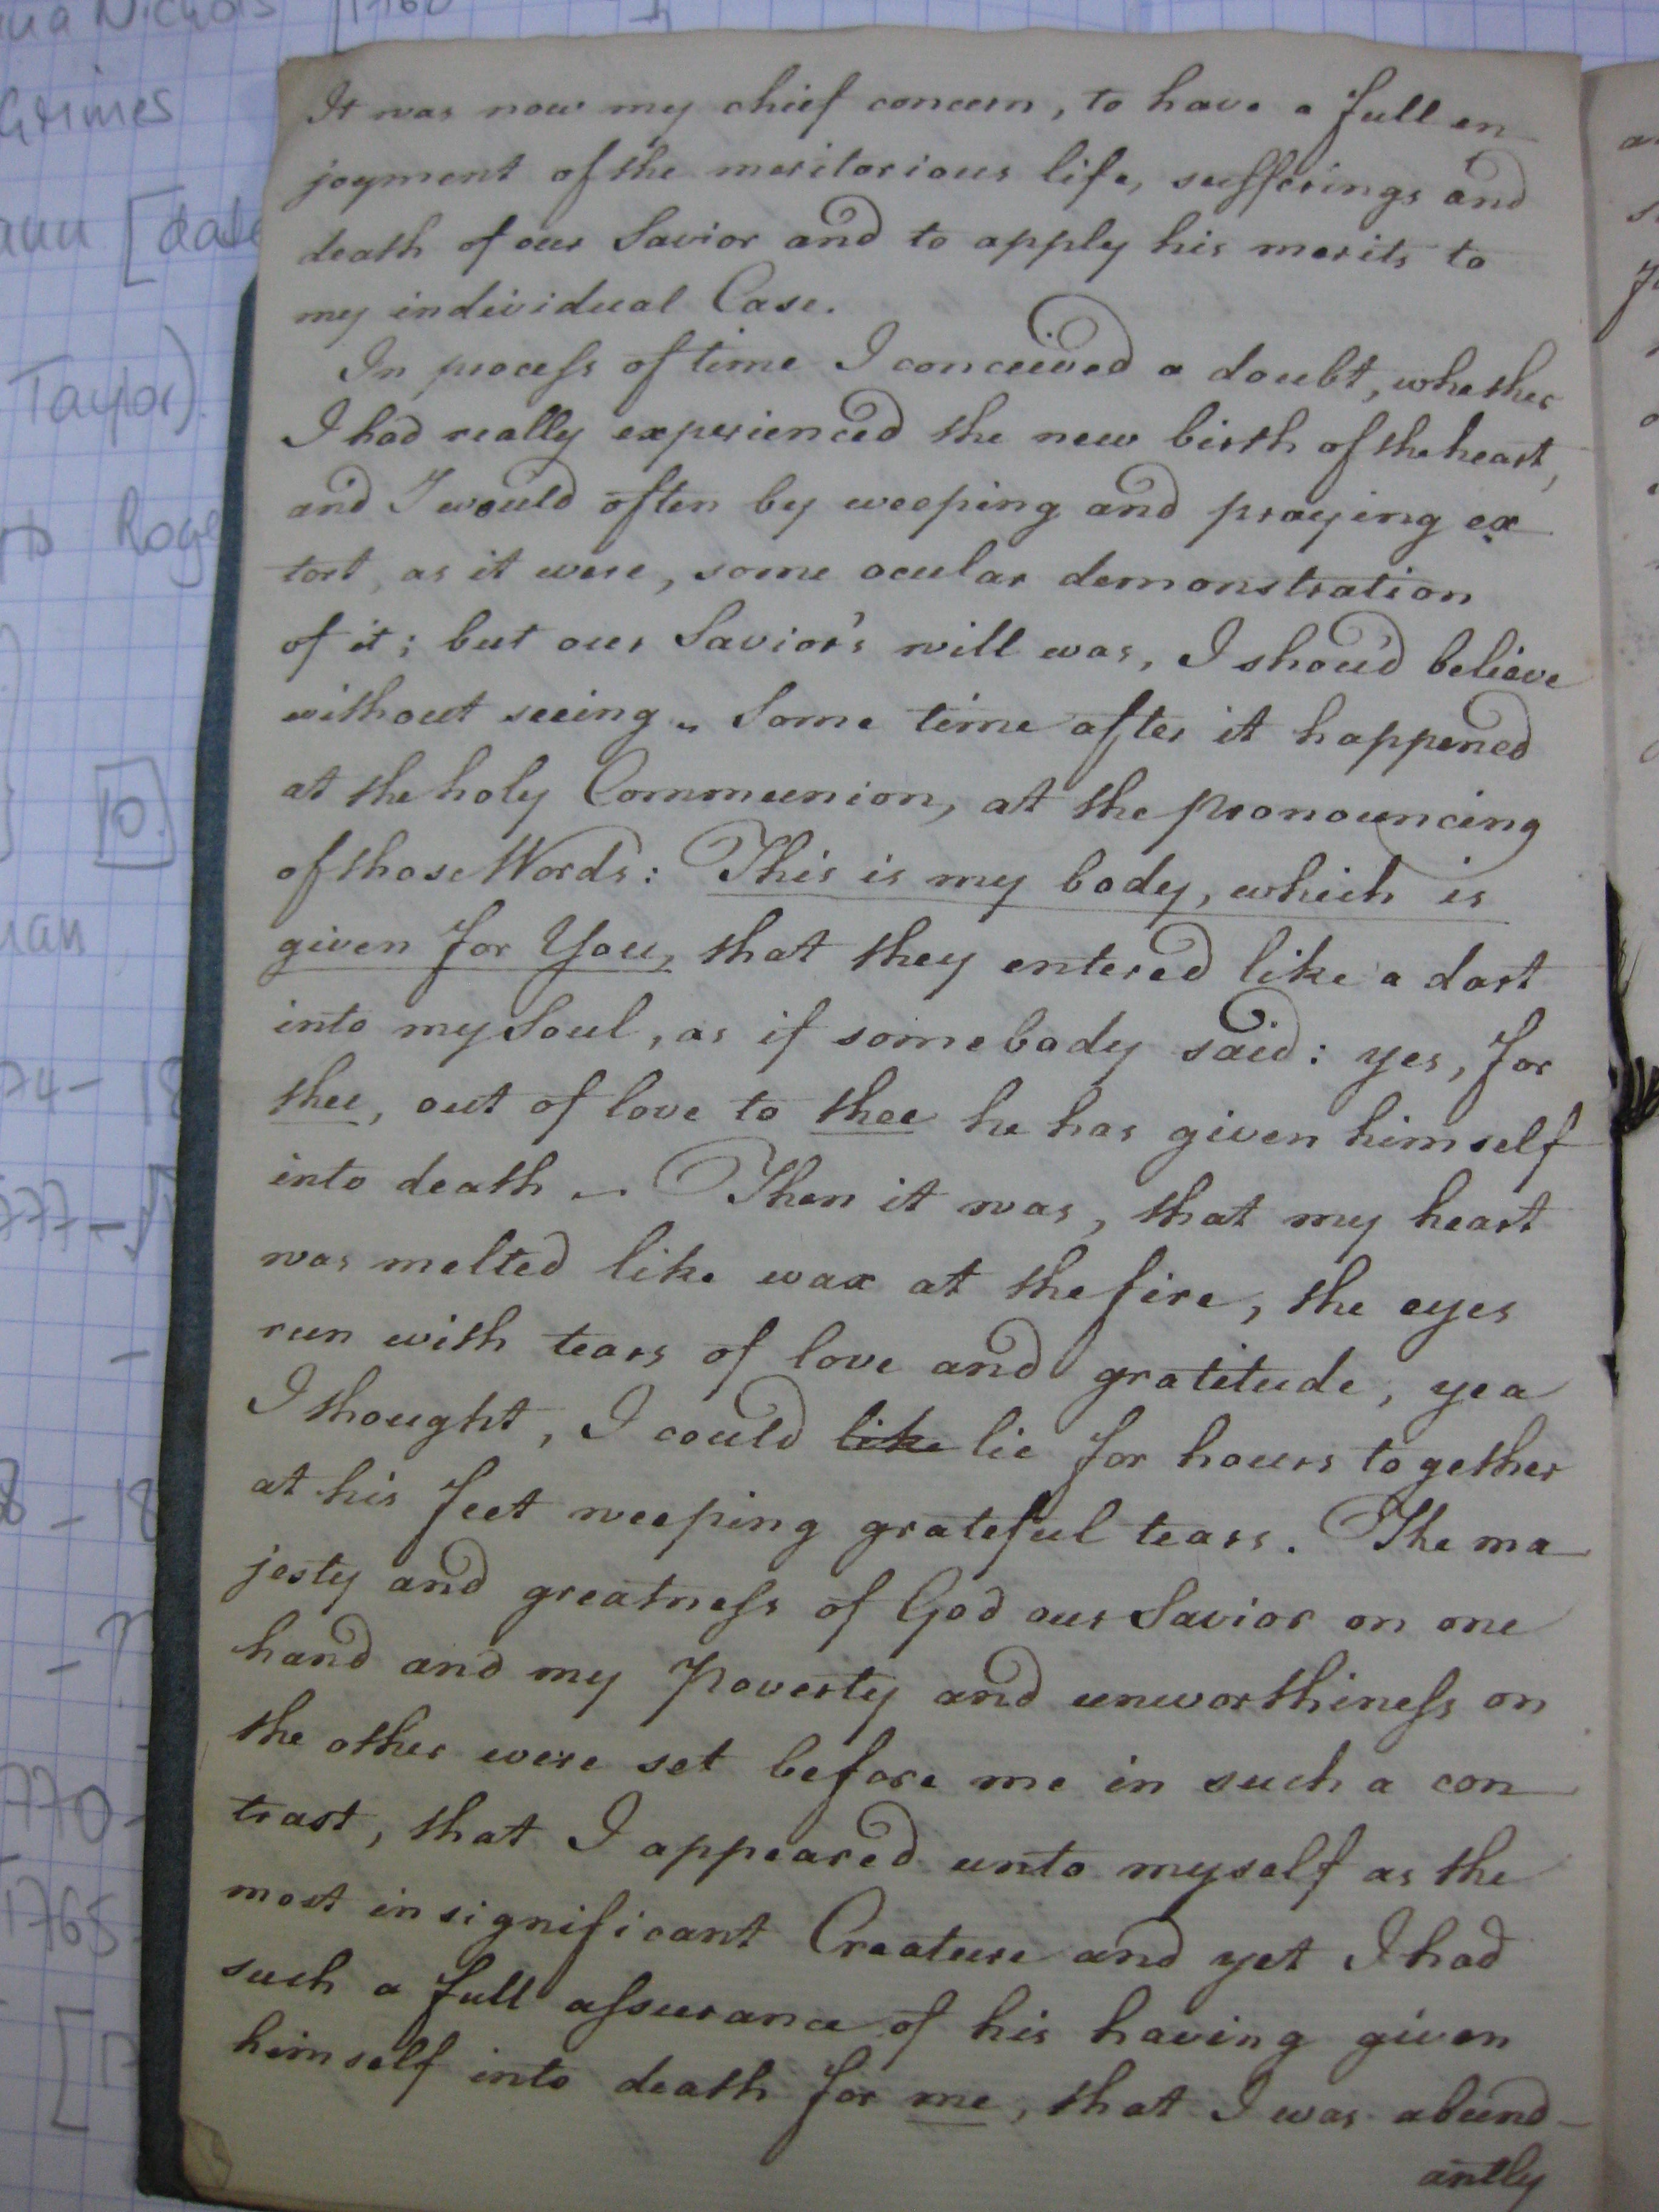 ua Nichols 1760
Grimes
ann [date
Taylor).
Roge
10.
man
74 - 18
777 -
8 - 18
- ?
770 -
1765
It was now my chief concern, to have a full en
joyment of the meritorious life, sufferings and
death of our Savior and to apply his merits to
my individual Case.
In process of time I conceived a doubt, whether
I had really experienced the new birth of the heart,
and I would often by weeping and praying ex
tort, as it were, some ocular demonstration
of it; but our Savior's will was, I shou'd believe
without seeing. Some time after it happened
at the holy Communion, at the pronouncing
of those Words: This is my body, which is
given for You, that they entered like a dart
into my Soul, as if somebody said: yes, for
thee, out of love to thee he has given himself
into death. – Then it was, that my heart
was melted like wax at the fire, the eyes
run with tears of love and gratitude, yea
I thought, I could like lie for hours together
at his feet weeping grateful tears. The ma
jesty and greatness of God our Savior on one
hand and my Poverty and unworthiness on
the other were set before me in such a con
trast, that I appeared unto myself as the
most insignificant Creature and yet I had
such a full assurance of his having given
himself into death for me, that I was abund-
antly